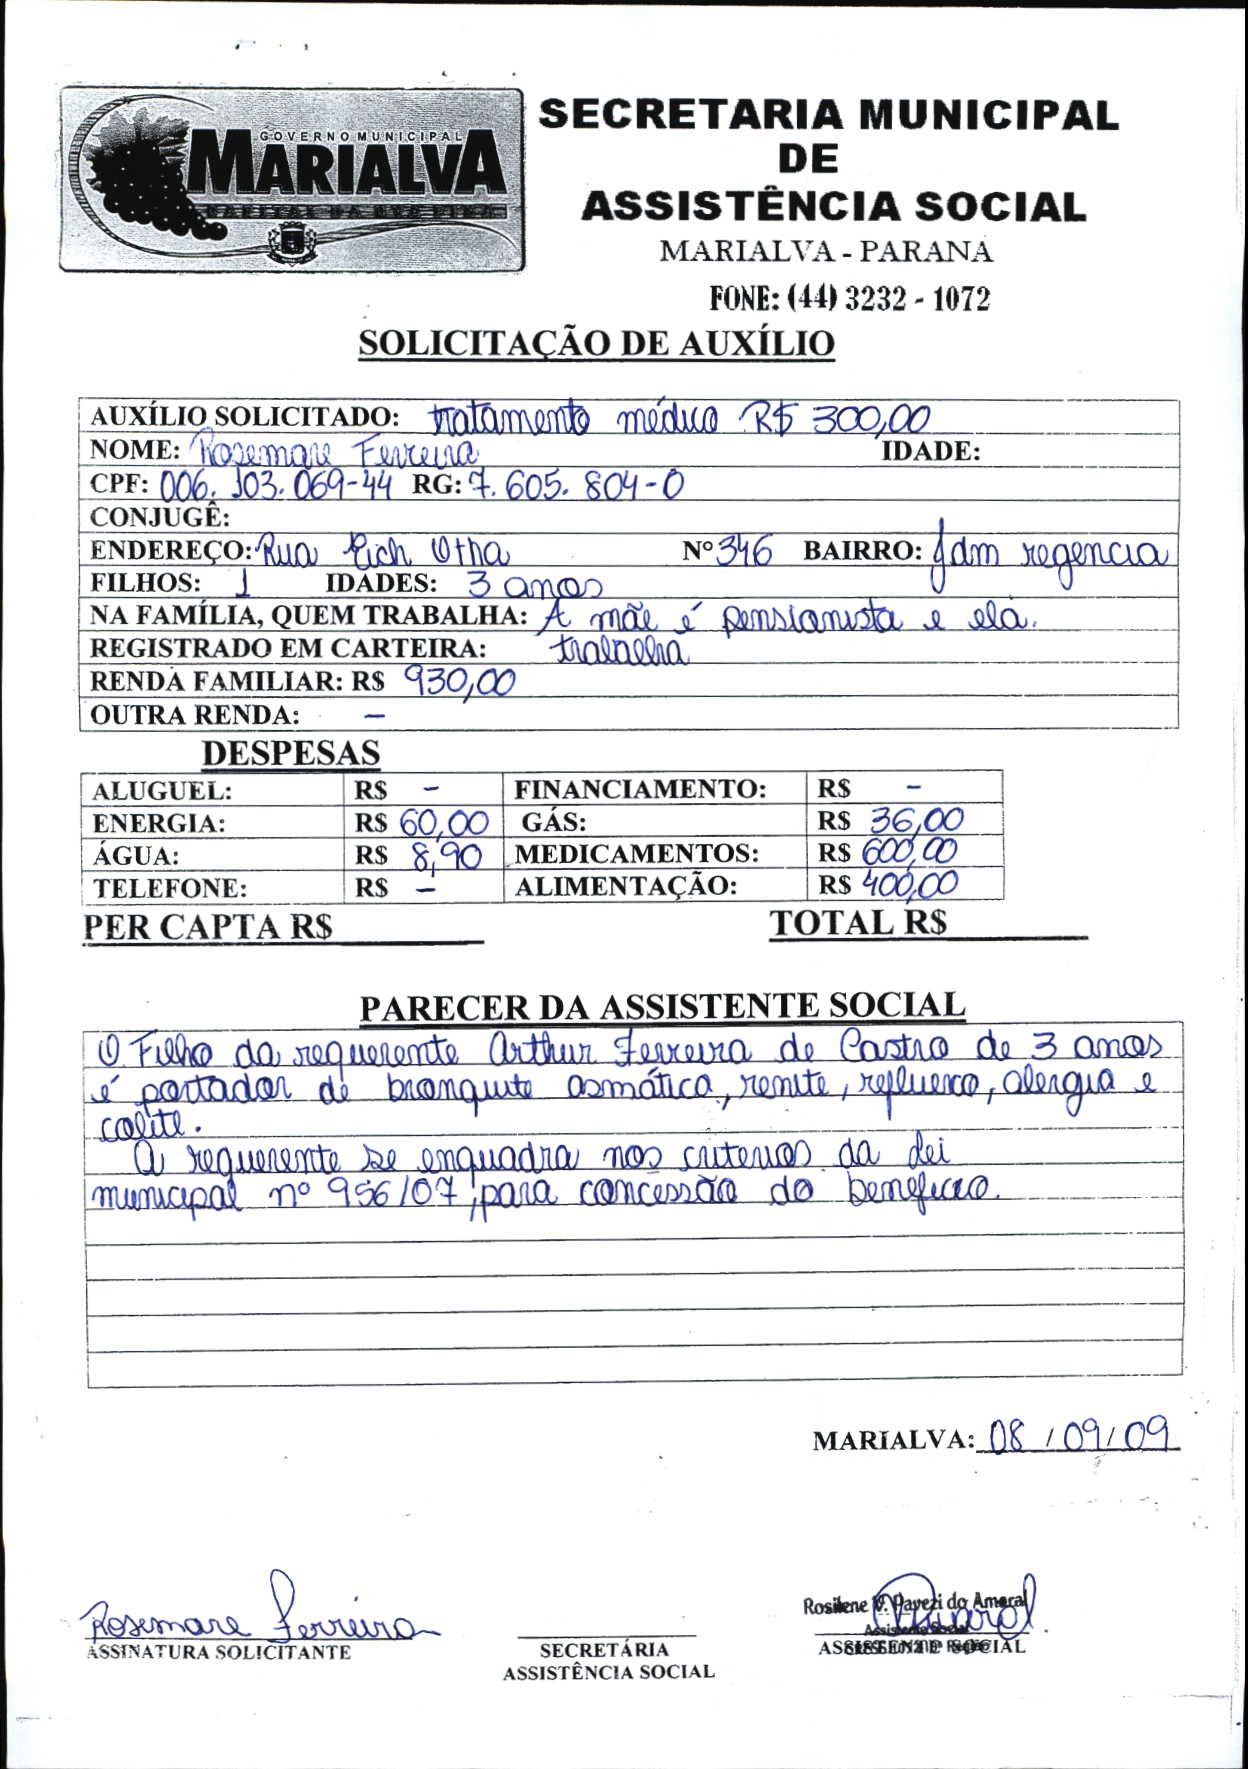 GOVERNO MUNICIPAL
MARIALVA
SECRETARIA MUNICIPAL
DE
ASSISTÊNCIA SOCIAL
MARIALVA - PARANÁ
FONE: (44) 3232 - 1072
SOLICITAÇÃO DE AUXÍLIO
AUXÍLIO SOLICITADO: tratamento médico R$ 300,00
NOME: Rosemare Ferreira IDADE:
CPF: 006.103.069-44 RG: 7.605.804-0
CONJUGÊ:
ENDEREÇO: Rua Eich Otha Nº 346 BAIRRO: Jdm regencia
FILHOS: 1 IDADES: 3 anos
NA FAMÍLIA, QUEM TRABALHA: A mãe é pensionista e ela.
REGISTRADO EM CARTEIRA: trabalha
RENDA FAMILIAR: R$ 930,00
OUTRA RENDA: -
DESPESAS
ALUGUEL: R$ - FINANCIAMENTO: R$ -
ENERGIA: R$ 60,00 GÁS: R$ 36,00
ÁGUA: R$ 8,90 MEDICAMENTOS: R$ 600,00
TELEFONE: R$ - ALIMENTAÇÃO: R$ 400,00
PER CAPTA R$ TOTAL R$
PARECER DA ASSISTENTE SOCIAL
O Filho da requerente Arthur Ferreira de Castro de 3 anos
é portador de bronquite asmática, renite, refluexo, alergia e
colite.
A requerente se enquadra nos criterios da lei
municipal nº 956/07, para concessão do beneficio.
MARIALVA: 08/09/09
Rosemare Ferreira
ASSINATURA SOLICITANTE
SECRETÁRIA
ASSISTÊNCIA SOCIAL
Rosilene V. Pavezi do Amaral
Assistente Social
ASSISTENTE SOCIAL